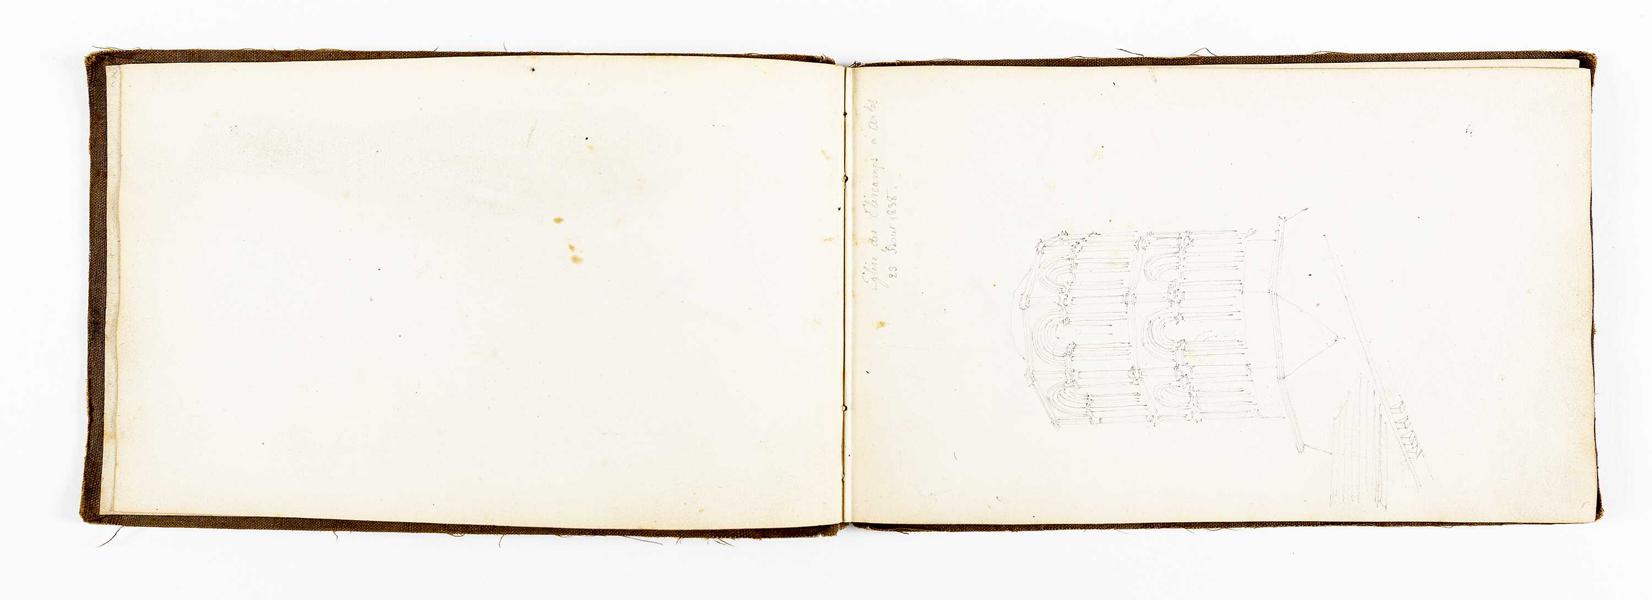 Eglise des Eliscamps à Arles
23 Aout 1838.